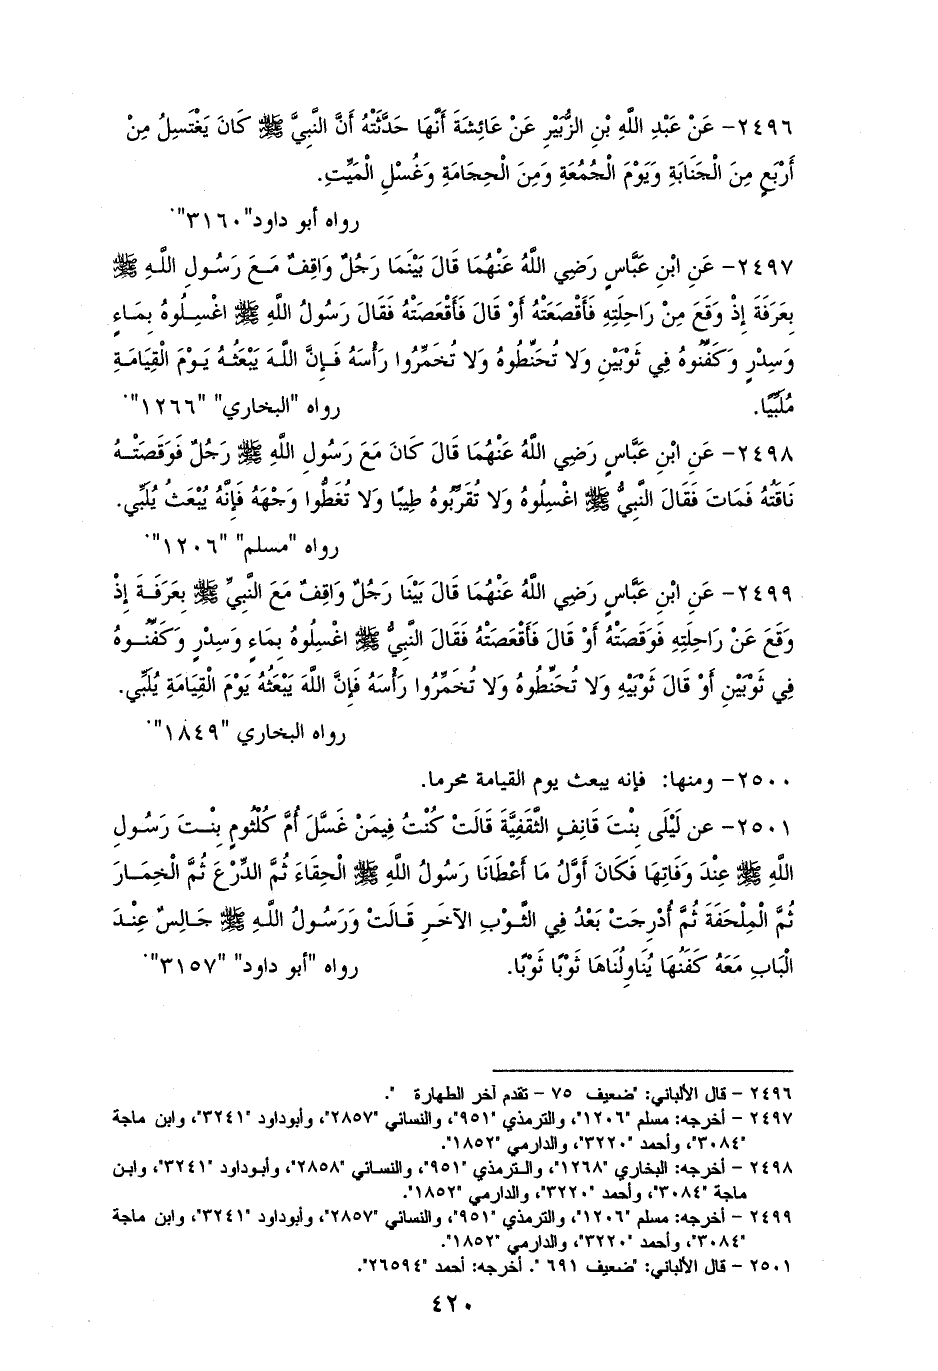 ٢٤٩٦– عَنْ عَبْدِ اللَّهِ بْنِ الزُّبَيْرِ عَنْ عَائِشَةَ أَنَّهَا حَدَّثَتْهُ أَنَّ النَّبِيَّ ﷺ كَانَ يَغْتَسِلُ مِنْ
أَرْبَعٍ مِنَ الْجَنَابَةِ وَيَوْمَ الْجُمُعَةِ وَمِنَ الْحِجَامَةِ وَغُسْلِ الْمَيِّتِ.
رواه أبو داود"٣١٦٠".
٢٤٩٧– عَنِ ابْنِ عَبَّاسٍ رَضِي اللَّهُ عَنْهُمَا قَالَ بَيْنَمَا رَجُلٌ وَاقِفٌ مَـعَ رَسُولِ اللَّـهِ ﷺ
بِعَرَفَةَ إِذْ وَقَعَ مِنْ رَاحِلَتِهِ فَأَقْصَعَتْهُ أَوْ قَالَ فَأَقْعَصَتْهُ فَقَالَ رَسُولُ اللَّهِ ﷺ اغْسِـلُوهُ بِمَـاءٍ
وَسِدْرٍ وَكَفِّنُوهُ فِي ثَوْبَيْنِ وَلا تُحَنِّطُوهُ وَلا تُخَمِّرُوا رَأْسَهُ فَـإِنَّ اللَّـهَ يَبْعَثُـهُ يَـوْمَ الْقِيَامَـةِ
مُلَبِّيًا. رواه "البخاري" "١٢٦٦".
٢٤٩٨– عَنِ ابْنِ عَبَّاسٍ رَضِي اللَّهُ عَنْهُمَا قَالَ كَانَ مَعَ رَسُولِ اللَّهِ ﷺ رَجُلٌ فَوَقَصَتْـهُ
نَاقَتُهُ فَمَاتَ فَقَالَ النَّبِيُّ ﷺ اغْسِلُوهُ وَلا تُقَرِّبُوهُ طِيبًا وَلا تُغَطُّوا وَجْهَهُ فَإِنَّهُ يُبْعَثُ يُلَبِّي.
رواه "مسلم" "١٢٠٦".
٢٤٩٩– عَنِ ابْنِ عَبَّاسٍ رَضِي اللَّهُ عَنْهُمَا قَالَ بَيْنَا رَجُلٌ وَاقِفٌ مَعَ النَّبِيِّ ﷺ بِعَرَفَـةَ إِذْ
وَقَعَ عَنْ رَاحِلَتِهِ فَوَقَصَتْهُ أَوْ قَالَ فَأَقْعَصَتْهُ فَقَالَ النَّبِيُّ ﷺ اغْسِلُوهُ بِمَاءٍ وَسِدْرٍ وَكَفِّنُـوهُ
فِي ثَوْبَيْنِ أَوْ قَالَ ثَوْبَيْهِ وَلا تُحَنِّطُوهُ وَلا تُخَمِّرُوا رَأْسَهُ فَإِنَّ اللَّهَ يَبْعَثُهُ يَوْمَ الْقِيَامَةِ يُلَبِّي.
رواه البخاري "١٨٤٩".
٢٥٠٠– ومنها: فإنه يبعث يوم القيامة محرما.
٢٥٠١– عن لَيْلَى بِنْتَ قَانِفٍ الثَّقَفِيَّةَ قَالَتْ كُنْتُ فِيمَنْ غَسَّلَ أُمَّ كُلْثُومٍ بِنْـتَ رَسُـولِ
اللَّهِ ﷺ عِنْدَ وَفَاتِهَا فَكَانَ أَوَّلُ مَا أَعْطَانَا رَسُولُ اللَّهِ ﷺ الْحِقَاءَ ثُمَّ الدِّرْعَ ثُمَّ الْخِمَـارَ
ثُمَّ الْمِلْحَفَةَ ثُمَّ أُدْرِجَتْ بَعْدُ فِي الثَّـوْبِ الآخَـرِ قَـالَتْ وَرَسُـولُ اللَّـهِ ﷺ جَـالِسٌ عِنْـدَ
الْبَابِ مَعَهُ كَفَنُهَا يُنَاوِلُنَاهَا ثَوْبًا ثَوْبًا. رواه "أبو داود" "٣١٥٧".
٢٤٩٦ – قال الألباني: "ضعيف ٧٥ – تقدم آخر الطهارة ".
٢٤٩٧ – أخرجه: مسلم "١٢٠٦"، والترمذي "٩٥١"، والنسائي "٢٨٥٧"، وأبوداود "٣٢٤١"، وابن ماجة
"٣٠٨٤"، وأحمد "٣٢٢٠"، والدارمي "١٨٥٢".
٢٤٩٨ – أخرجه: البخاري "١٢٦٨"، والـترمذي "٩٥١"، والنسـائي "٢٨٥٨"، وأبـوداود "٣٢٤١"، وابـن
ماجة "٣٠٨٤"، وأحمد "٣٢٢٠"، والدارمي "١٨٥٢".
٢٤٩٩ – أخرجه: مسلم "١٢٠٦"، والترمذي "٩٥١"، والنسائي "٢٨٥٧"، وأبوداود "٣٢٤١"، وابن ماجة
"٣٠٨٤"، وأحمد "٣٢٢٠"، والدارمي "١٨٥٢".
٢٥٠١ – قال الألباني: "ضعيف ٦٩١ ". أخرجه: أحمد "٢٦٥٩٤".
٤٢٠